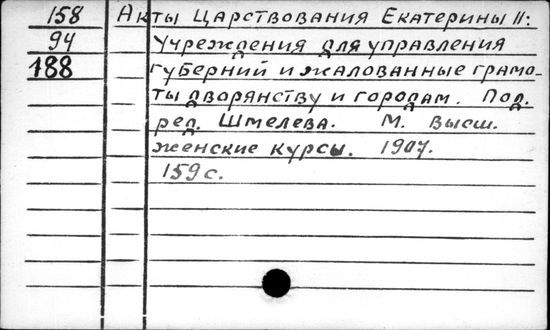 158 Акты Царствования Екатерины II:
94 Учреждения для управления
188 губерний и жалованные грамо-
ты дворянству и городам. Под.
ред. Шмелева. М. Высш.
женские курсы. 1907.
159 с.